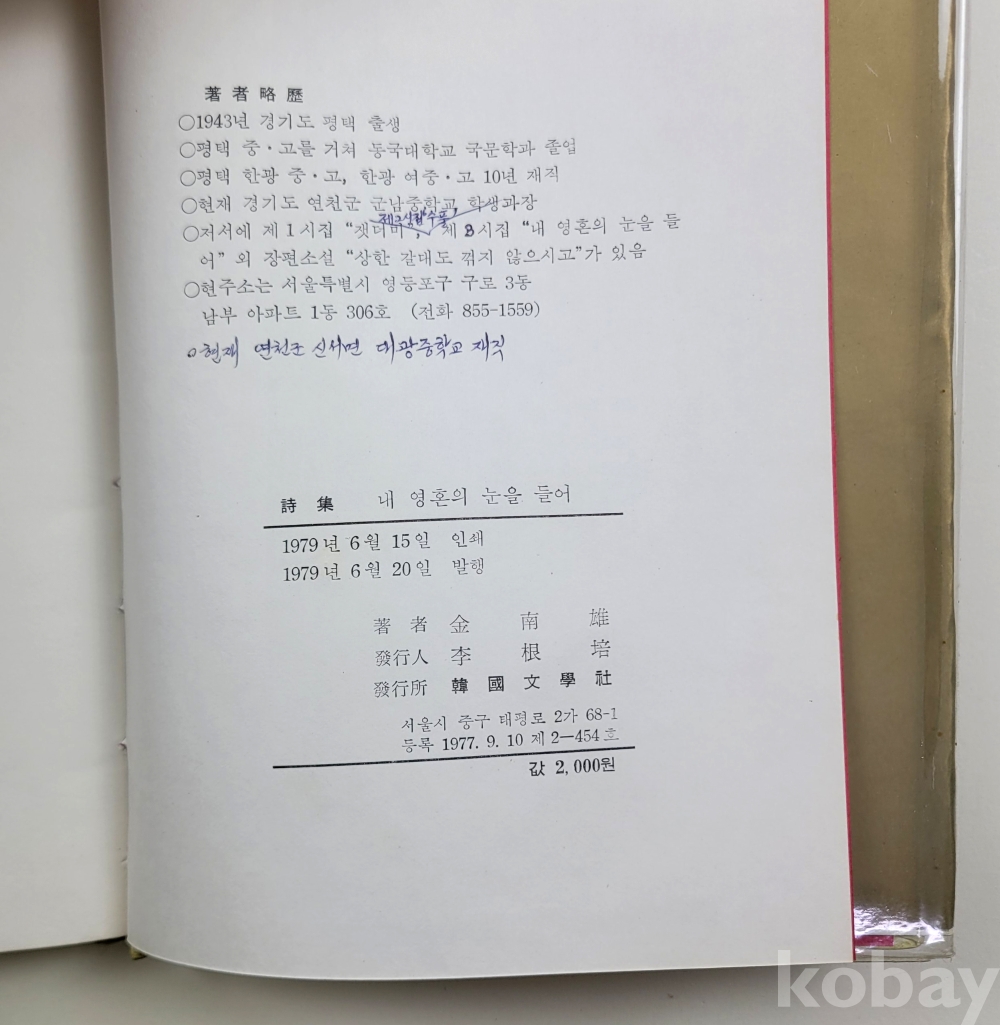 著者略歷
○1943년 경기도 평택 출생
○평택 중·고를 거쳐 동국대학교 국문학과 졸업
○평택 한광 중·고, 한광 여중·고 10년 재직
○현재 경기도 연천군 군남중학교 학생과장
제2시집 "수풀"
○저서에 제1시집 "잿더미", 제3시집 "내 영혼의 눈을 들
어" 외 장편소설 "상한 갈대도 꺾지 않으시고"가 있음
○현주소는 서울특별시 영등포구 구로 3동
남부 아파트 1동 306호 (전화 855-1559)
○현재 연천군 신서면 대광중학교 재직
詩集 내 영혼의 눈을 들어
1979년 6월 15일 인쇄
1979년 6월 20일 발행
著者 金南雄
發行人 李根培
發行所 韓國文學社
서울시 중구 태평로 2가 68-1
등록 1977. 9. 10 제2—454호
값 2,000원
kobay